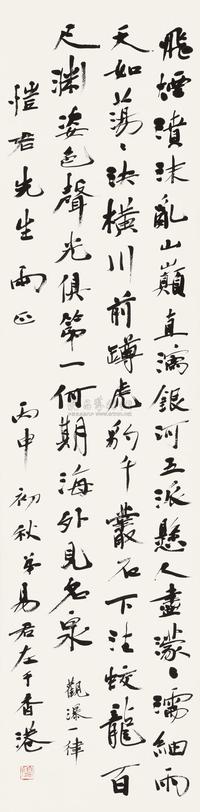 飛煙濆沫亂山巔直瀉銀河五派懸人盡濛〻濡細雨
天如蕩〻決橫川前蹲虎豹千叢石下注蛟龍百
尺淵姿色聲光俱第一何期海外見名泉 觀瀑一律
愷君先生兩正 丙申初秋弟易君左于香港